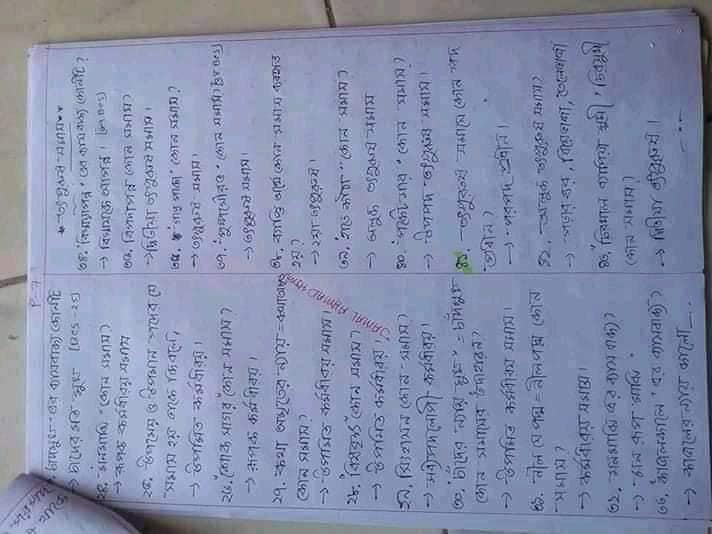 P-7
চাঁদমুখ" এর ব্যাসবাক্য কোনটি
→ চাঁদের মত মুখ [BCS-25]
২৪. "মনমাঝি" কোন সমাস?
→ রূপক কর্মধারয় সমাস
২৫. উপমেয় ও উপমান পদের যে
সমাস হয় তাকে কি বলে,
→ উপমিত কর্মধারয়।
২৬. "শোক সাগর" কোন সমাস?
→ রূপক কর্মধারয়।
২৭. কথা অমৃতের ন্যায় = কথামৃত
কোন সমাস?
→ উপমিত কর্মধারয় সমাস।
২৮. কোন সমাস?
→ উপমিত কর্মধারয়।
২৯. সিংহাসন কোন সমাস?
→ মধ্যপদলোপী কর্মধারয়।
৩০. "চাঁদের ন্যায় মুখ" = চাঁদমুখ
কোন সমাসের উদাহরন?
→ উপমিত কর্মধারয় সমাস।
৩১. নীল যে পদ্ম = নীলপদ্ম কোন
সমাস?
→ কর্মধারয় সমাস।
৩২. মনমাঝি এর ব্যাস বাক্য?
→ মন রূপ মাঝি
৩৩. "কাজলকালো" এর ব্যাসবাক্য?
→ কাজলের ন্যায় কালো
JAMAL AHMAD
* তৎপুরুষ সমাস *
৩৪. "বিস্ময়াপন্ন" এর ব্যাসবাক্য কোনটি?
→ বিস্ময়কে আপন্ন।
৩৫. বিপদাপন্ন কোন সমাস?
→ দ্বিতীয়া তৎপুরুষ সমাস।
৩৬. "গাছ পাকা" কোন সমাস?
→ তৎপুরুষ সমাস।
৩৭. "পুষ্পসৌরভ" কোন সমাস?
→ তৎপুরুষ সমাস।
৩৮. ব্যাপ্তি অর্থে কোন সমাস ব্যবহৃত
হয়?
→ ২য়া তৎপুরুষ।
৩৯. "হাতে কাটা" কোন সমাস?
→ অলুক তৎপুরুষ সমাস
৪০. "পকেটমার" কোন সমাস?
→ উপপদ তৎপুরুষ সমাস।
৪১. তৎপুরুষ সমাসে কোন পদ
প্রধান?
→ পরপদ প্রধান।
৪২. অলুক তৎপুরুষ সমাস?
→ পড়ার ঘর, ঘিয়েভাজা, তেলেভাজা
৪৩. "চিরকাল ব্যাপিয়া সুখী" চিরসুখী
কোন সমাস?
→ দ্বিতীয়া তৎপুরুষ।